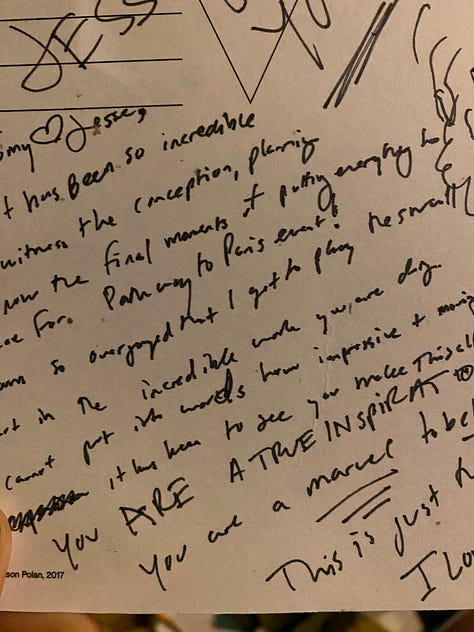 JESS
omy ♡ Jesse,
t has been so incredible
witness the conception, planning
now the final moments of putting everything
ce for Pathway to Paris event!
so overjoyed that I get to play the small
in the incredible work you are doing.
cannot put into words how impressive + moving
it has been to see you make this all
YOU ARE A TRUE INSPIRATIO
You are a marvel to be
This is just
I Lo
son Polan, 2017